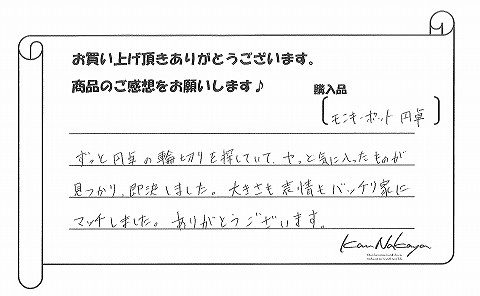 お買い上げ頂きありがとうございます。
商品のご感想をお願いします♪
購入品
モンキーポット 円卓
ずっと円卓の輪切りを探していて、やっと気に入ったものが
見つかり、即決しました。大きさも表情もバッチリ家に
マッチしました。ありがとうございます。
KanNakaya